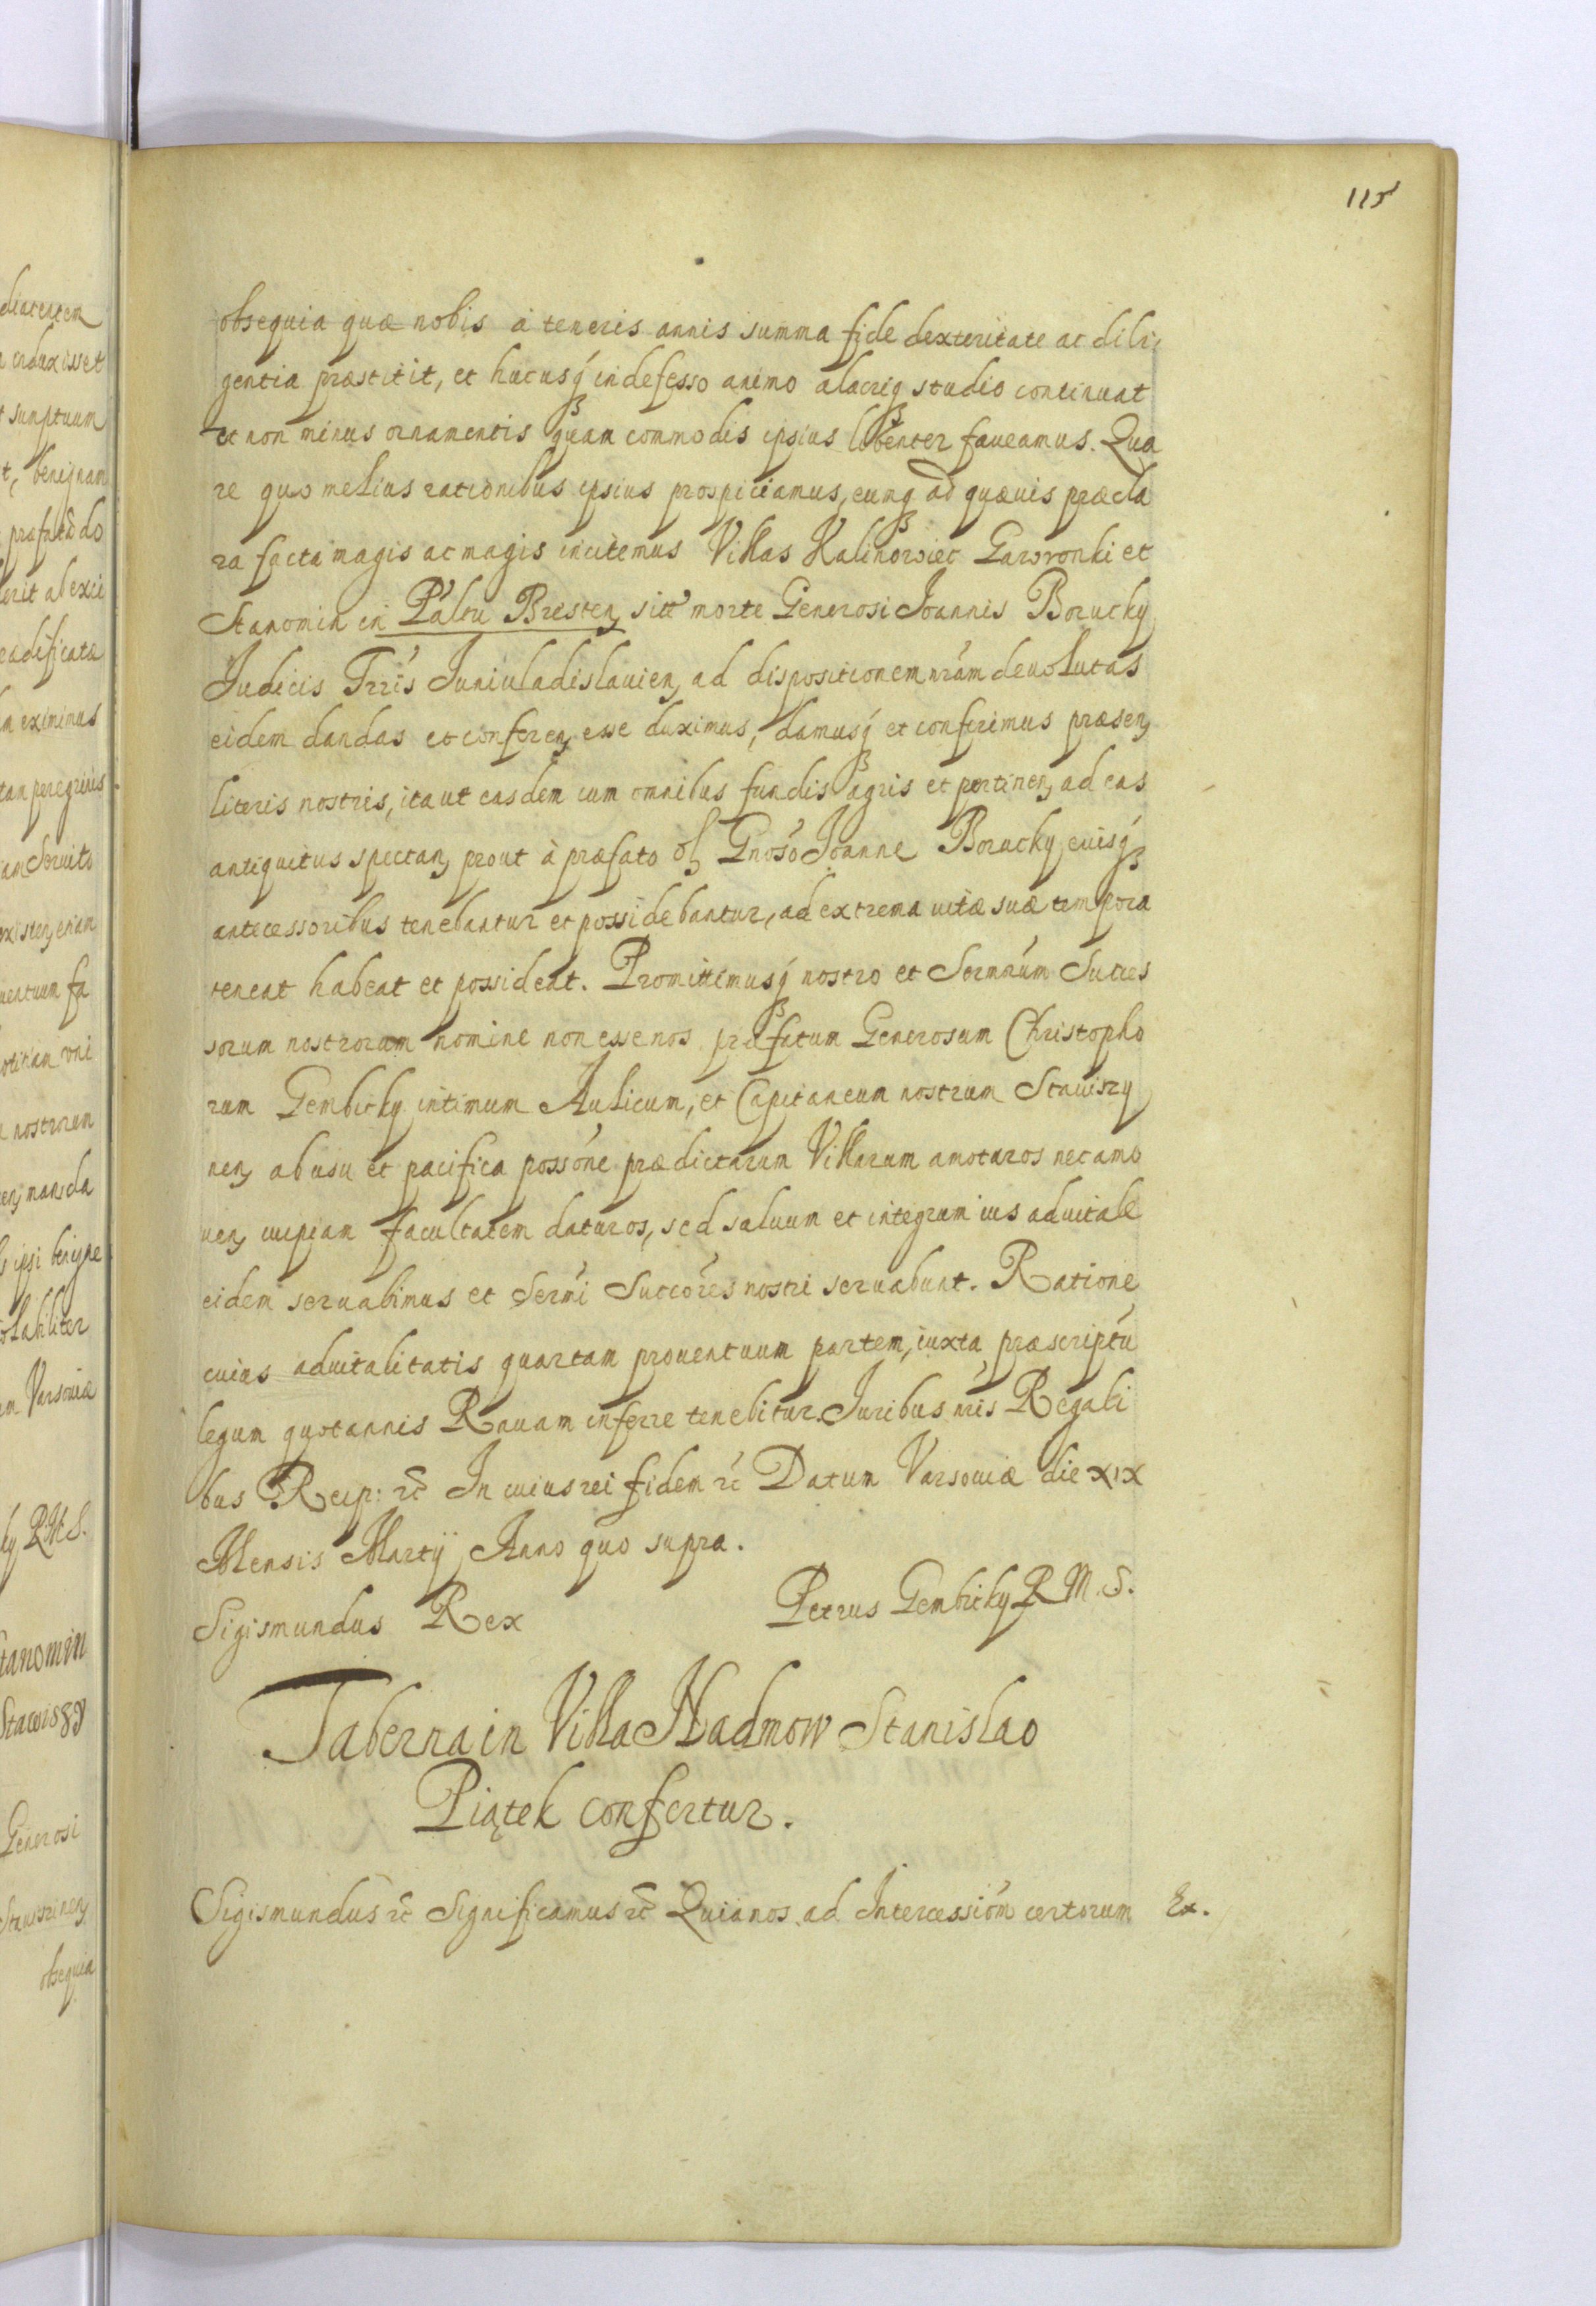 115
obsequia quæ nobis à teneris annis summa fide dexteritate ac dili
gentia præstitit, et hucusq indefesso animo alacriq studio continuat
et non minus ornamentis quam commodis ipsius libenter faueamus. Qua
re quo melius rationibus ipsius prospiciamus, eumq ad quæuis præcla
ra facta magis ac magis incitemus Villas Kalinowiec Gawronki et
Stanomin in Paltu Bresten, sitt morte Generosi Joannis Borucky
Judicis Trris Juniuladislauien, ad dispositionem nram deuolutas
eidem dandas et conferen, esse duximus, damusq et conferimus præsen,
literis nostris, ita ut easdem cum omnibus fundis agris et pertinen, ad eas
antiquitus spectan, prout à præfato ol Gnoso Joanne Borucky, euisq
antecessoribus tenebantur et possidebantur, ad extrema uitæ suæ tempora
teneat habeat et possideat. Promittimusq nostro et Sermnum Succes
sorum nostrorum nomine non esse nos præfatum Generosum Christopho
rum Gembicky intimum Aulicum, et Capitaneum nostrum Stauiszy
nen, ab usu et pacifica possone prædictarum Villarum amoturos nec amo
uen, cuipiam facultatem daturos, sed saluum et integrum ius aduitale
eidem seruabimus et Sermi Succores nostri seruabunt. Ratione
cuius aduitalitatis quartam prouentuum partem, iuxta præscriptu
legum quotannis Rauam inferre tenebitur. Juribus nris Regali
bus Reip: etc In cuius rei fidem etc Datum Varsouiæ die XIX
Mensis Martij Anno quo supra.
Sigismundus Rex Petrus Gembicky R. M. S.
Taberna in Villa Nadmow Stanislao
Piątek confertur.
Sigismundus etc Significamus etc Quia nos ad Intercessiom certorum Ex.